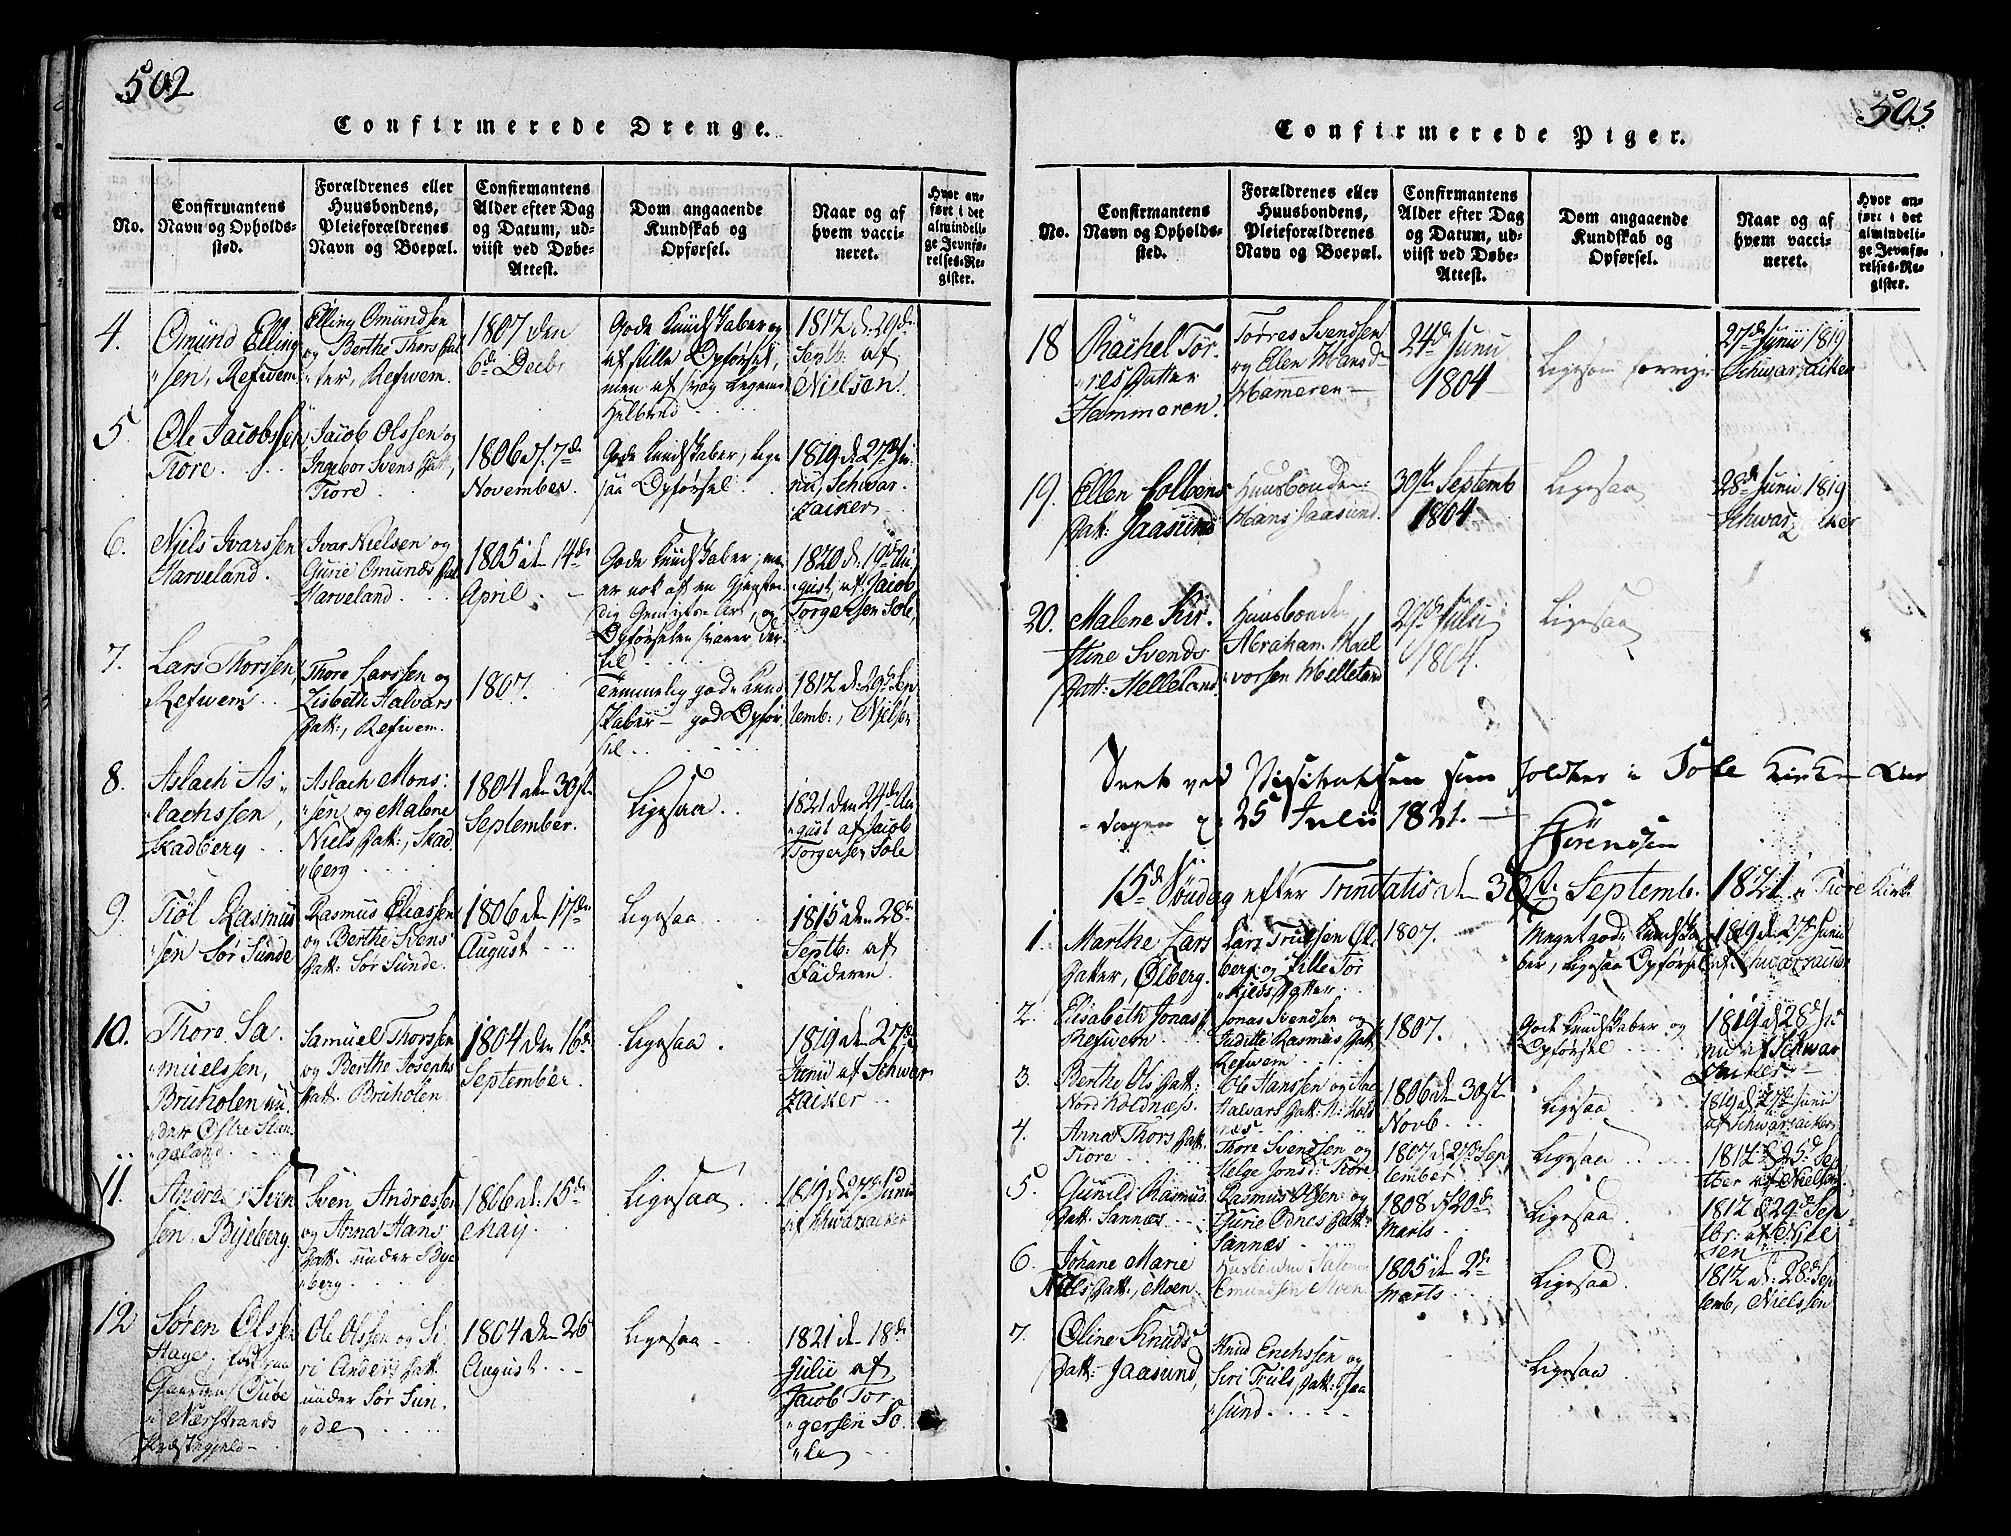 502
Confirmerede Drenge.
No.
Confirmantens
Navn og Opholds-
sted.
Forældrenes eller
Huusbondens,
Pleieforældrenes
Navn og Boepæl.
Confirmantens
Alder efter Dag
og Datum, ud-
viist ved Døbe-
Attest.
Dom angaaende
Kundskab og
Opførsel.
Naar og af
hvem vacci-
neret.
Hvor an-
ført i det
almindeli-
ge Jevnfø-
relses-Re-
gister.
4.
Omund Elling
"sen, Refwem
Elling Omundsen
og Berthe Thors Dat
"ter, Refwem.
1807 den
6de Decbr
Gode Kundskaber og
af stille Opførsel,
men af svag Legems
Helbred
1812 d. 29de
Septb. af
Nielsen.
5.
Ole Jacobssen
Tiore
Jacob Olssen og
Ingebor Svens Datt.,
Tiore
1806 d. 7de
November.
Gode Kundskaber, lige
saa Opførsel
1819 d. 27de Ju-
nii, Schwar-
zacker
6.
Niels Ivarssen
Harveland.
Ivar Nielsen og
Gurie Omunds Dat
Harveland
1805 den 14de
April
Gode Kundskaber,
er nok af en
Art, og
Opførselen svarer der-
til
1820 d. 19de Au-
gust, af Jacob
Torgersen Sole,
7.
Lars Thorssen
Refwem
Thore Larssen og
Lisbeth Halvars
Datt:, Refwem.
1807.
Temmelig gode Kund
skaber - god Opfør-
sel
1812 d. 29de Sep
temb., Nielsen
8.
Aslach As-
"lachssen,
Skadberg
Aslach Mons-
"sen og Malene
Niels Datt:, Skad
"berg
1804 den 30te
September.
Ligesaa
1821 den 24de Au
"gust af Jacob
Torgersen Sole
9.
Tiøl Rasmus
"sen Sør Sunde
Rasmus Eliassen
og Berthe Svens
Datt: Sør Sunde.
1806 den 17de
August
Ligesaa
1815 den 28de
Septb. af
Faderen
10.
Thore Sa-
"muelssen,
Bruholen nu-
Østre Stan-
"geland
Samuel Thorssen
og Berthe Josephs
Datt: Bruholen
1804 den 16de
September
Ligesaa.
1819 den 27de
Junii af Schwar
zacker
11.
Andrea Sven
sen Byeberg.
Sven Andressen
og Anna Hans
Datt: under Bye
"berg
1806 d. 15de
May
Ligesaa
1819 d. 27de Junii
af Schwarzacker
12
Søren Olssen
Hage,
i Nerstrands
Ole Olssen og Si-
ri Anders Datt:
under Sør Sun-
"de
1804 den 26
August
Ligesaa
1821 den 18de
Julii af
Jacob Tor-
"gersen So-
"le
503
Confirmerede Piger.
No.
Confirmantens
Navn og Opholds-
sted.
Forældrenes eller
Huusbondens,
Pleieforældrenes
Navn og Boepæl.
Confirmantens
Alder efter Dag
og Datum, ud-
viist ved Døbe-
Attest.
Dom angaaende
Kundskab og
Opførsel.
Naar og af
hvem vacci-
neret.
Hvor an-
ført i det
almindeli-
ge Jevnfø-
relses-Re-
gister.
18
Rachel Tor-
"res Datter
Hammeren.
Tørres Svendsen
og Ellen Hans d
Hameren
24de Junii
1804
Ligesom forrige
27de Junii 1819
Schwarzacker
19.
Ellen Colbens
Datt: Jaasund
Huusbonden:
Hans Jaasund.
30te Septemb
1804
Ligesaa
28de Junii 1819
Schwarzacker
20.
Malene Kir-
stine Svends
Datt: Helleland
Huusbonden
Abraham Hal
vorsen Helleland
29de Julii
1804.
Ligesaa
ved Visitatsen som holdtes i Sole Kirke
dagen d. 25 Julii 1821.
Sørenssen
15de Søndag efter Trinitatis den 30te Septemb. 1821 i Tiore Kirke
1.
Marthe Lars
Datter, Ølberg.
Lars Trulsen Øl-
berg og Sille Tor
"kilds Datter
1807.
Meget gode Kundska
ber, ligesaa Opførsel
1819 d. 27de Junii
af Schwarzacker
2.
Elisabeth Jonas D.
Refwem
Jonas Svendsen og
Juditte Rasmus Dat
Refwem
1807.
Gode Kundskaber og
Opførsel
1819 d. 28de Ju-
nii af Schwar
zacker
3.
Berthe Ols Datt:
Nord Koldnæs.
Ole Hanssen og
Halvars Datt: N: Kold
næs
1806 den 30te
Novb.
Ligesaa
1819 d. 27de Junii
af Schwarzacker
4.
Anna Thors Datt:
Tiore
Thore Svendsen og
Helge Jonsd: Tiore
1807 d. 27de Sep
tember
Ligesaa
1812 d. 25de Sep
tber af Nielsen.
5.
Gunild Rasmus
Datt: Sannes
Rasmus Olsen og
Gurie Ednes Datt:
Sannæs
1808 d. 20de
Marts
Ligesaa.
1812 d. 29de Sep
tbr: af Niel
sen
6.
Johane Marie
Nils Datt:, Moen
Husbonden Salomon
Omundsen Moen
1805 den 2de
Marts
Ligesaa
1812 d. 28de Sep
temb, Nielssen
7.
Oline Knuds
Datt: Jaasund,
Knud Erichssen og
Siri Truls Datt: Jaa
"sund
Ligesaa